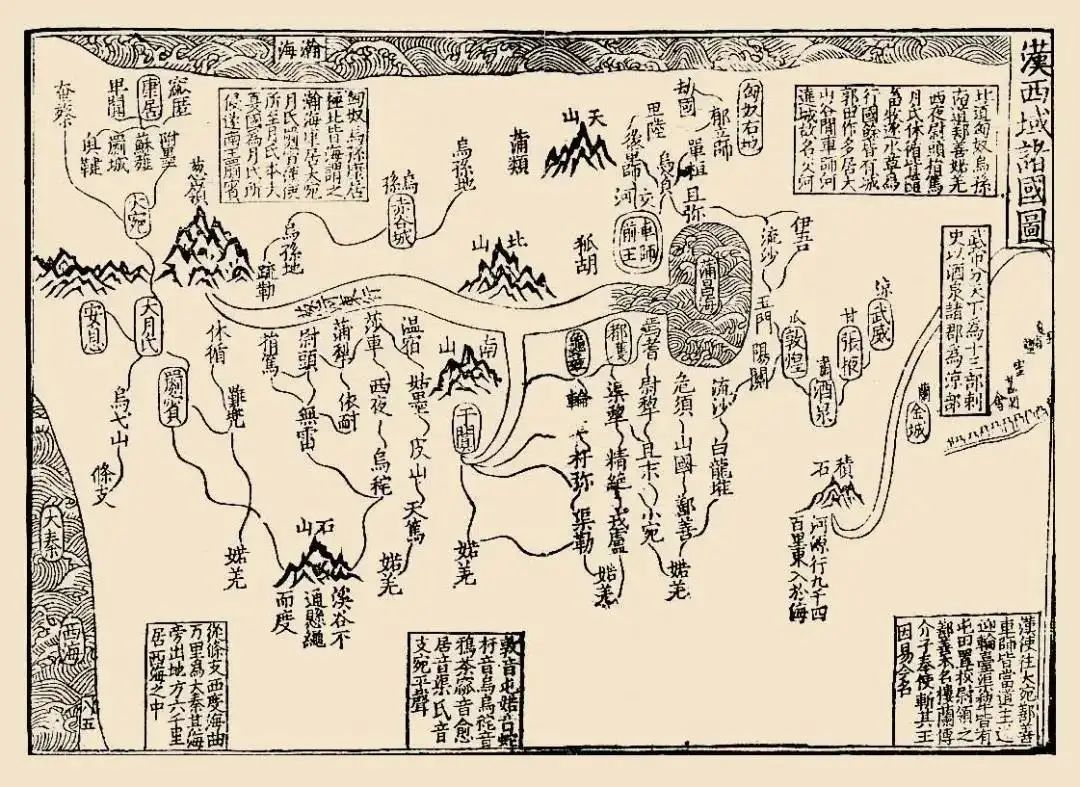 漢西域諸國圖
瀚海
北道匈奴烏孫
南道鄯善婼羌
西夜尉頭捐篤
月氏休循皆隨
畜牧逐水草為
行國餘皆有城
郭田作多居大
山谷間車師河
遶城故名交河
匈奴烏孫康居
極北皆海謂之
瀚海康居大宛
月氏
所至月氏本大
夏國為月氏所
侵遂南王罽賓
武帝分天下為十三部刺
史以酒泉諸郡為涼部
匈奴右地
郁立師
劫國
單桓
卑陸
後車師
烏貪
且弥
交河
車師前王
天山
蒲類
烏孫地
烏孫赤谷城
烏孫地
疏勒
葱嶺
窳匿
康居
罽城
附墨
蘇薤
奧鞬
奄蔡
大宛
大月氏
安息
罽賓
烏弋山
條支
大秦
西海
北山
狐胡
蒲昌海
伊吾
流沙
玉門
陽關
瓜敦煌
肅酒泉
甘張掖
涼武威
蘭金城
積石
河源行九千四
百里東入於海
流沙
白龍堆
危須
山國
鄯善
婼羌
焉耆
尉犂
且末
小宛
都護
渠犂
精絶
戎盧
婼羌
龜茲
輪
扞弥
渠勒
于闐
婼羌
南山
温宿
姑墨
皮山
天篤
婼羌
莎車
西夜
烏秅
蒲犁
依耐
尉頭
無雷
捐篤
休循
難兜
婼羌
石山
溪谷不
通縣繩
而度
漢使往大宛鄯善
車師皆當道主之
迎輪臺渠犂皆有
屯田置校尉領之
鄯善本名樓蘭傅
介子奉使斬其王
因易今名
敦音屯婼音蛇
扜音烏烏秅音
鴉茶窳音愈
居音渠氏音
支宛平聲
從條支西度海曲
万里為大秦其海
旁出地方六千里
居西海之中
八五